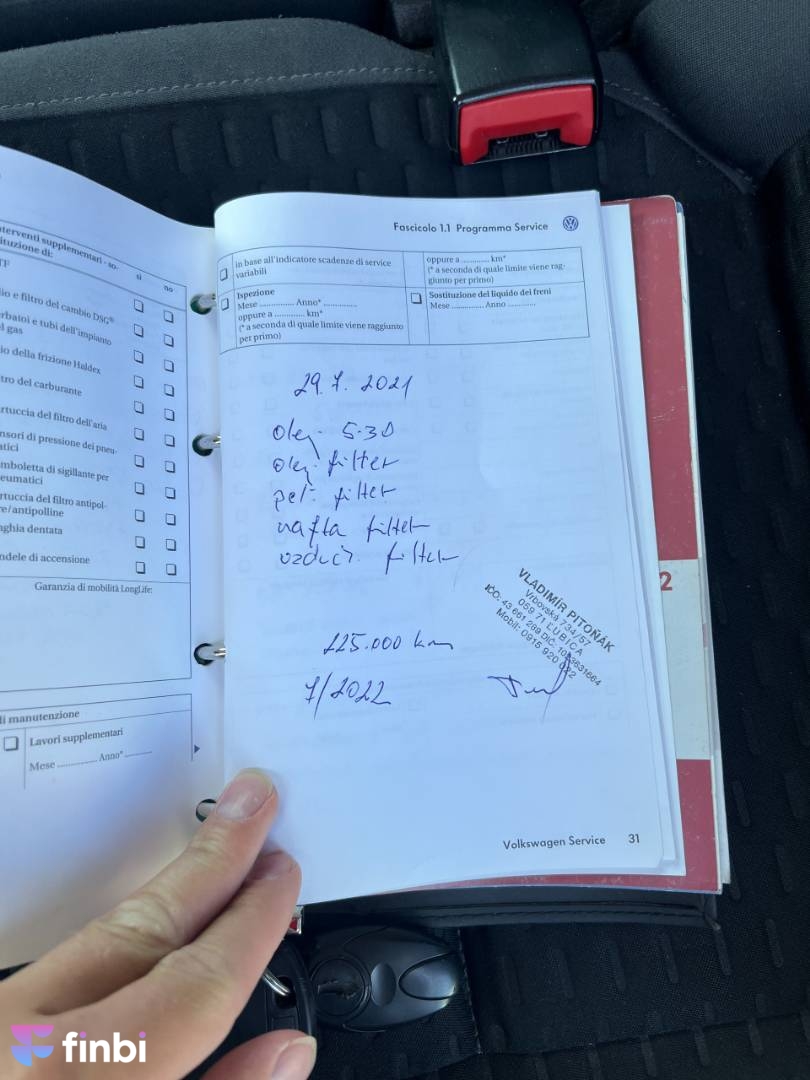 nterventi supplementari - so-
tituzione di:
sì no
TF
io e filtro del cambio DSG®
erbatoi e tubi dell'impianto
el gas
io della frizione Haldex
tro del carburante
artuccia del filtro dell'aria
nsori di pressione dei pneu-
atici
mboletta di sigillante per
neumatici
artuccia del filtro antipol-
re/antipolline
nghia dentata
ndele di accensione
Garanzia di mobilità LongLife:
di manutenzione
Lavori supplementari
Mese .............. Anno* ..............
Fascicolo 1.1 Programma Service
in base all'indicatore scadenze di service
variabili
oppure a ............ km*
(* a seconda di quale limite viene rag-
giunto per primo)
Ispezione
Mese .............. Anno* ..............
oppure a ............ km*
(* a seconda di quale limite viene raggiunto
per primo)
Sostituzione del liquido dei freni
Mese .............. Anno ............
29.7. 2021
olej 5-30
olej. filter
peľ. filter
nafta filter
vzduch. filter
225.000 km
7/2022
VLADIMÍR PITOŇÁK
Vrbovská 734/57
059 71 ĽUBICA
IČO: 43 661 289 DIČ:
Mobil: 0915 920
2
Volkswagen Service 31
finbi